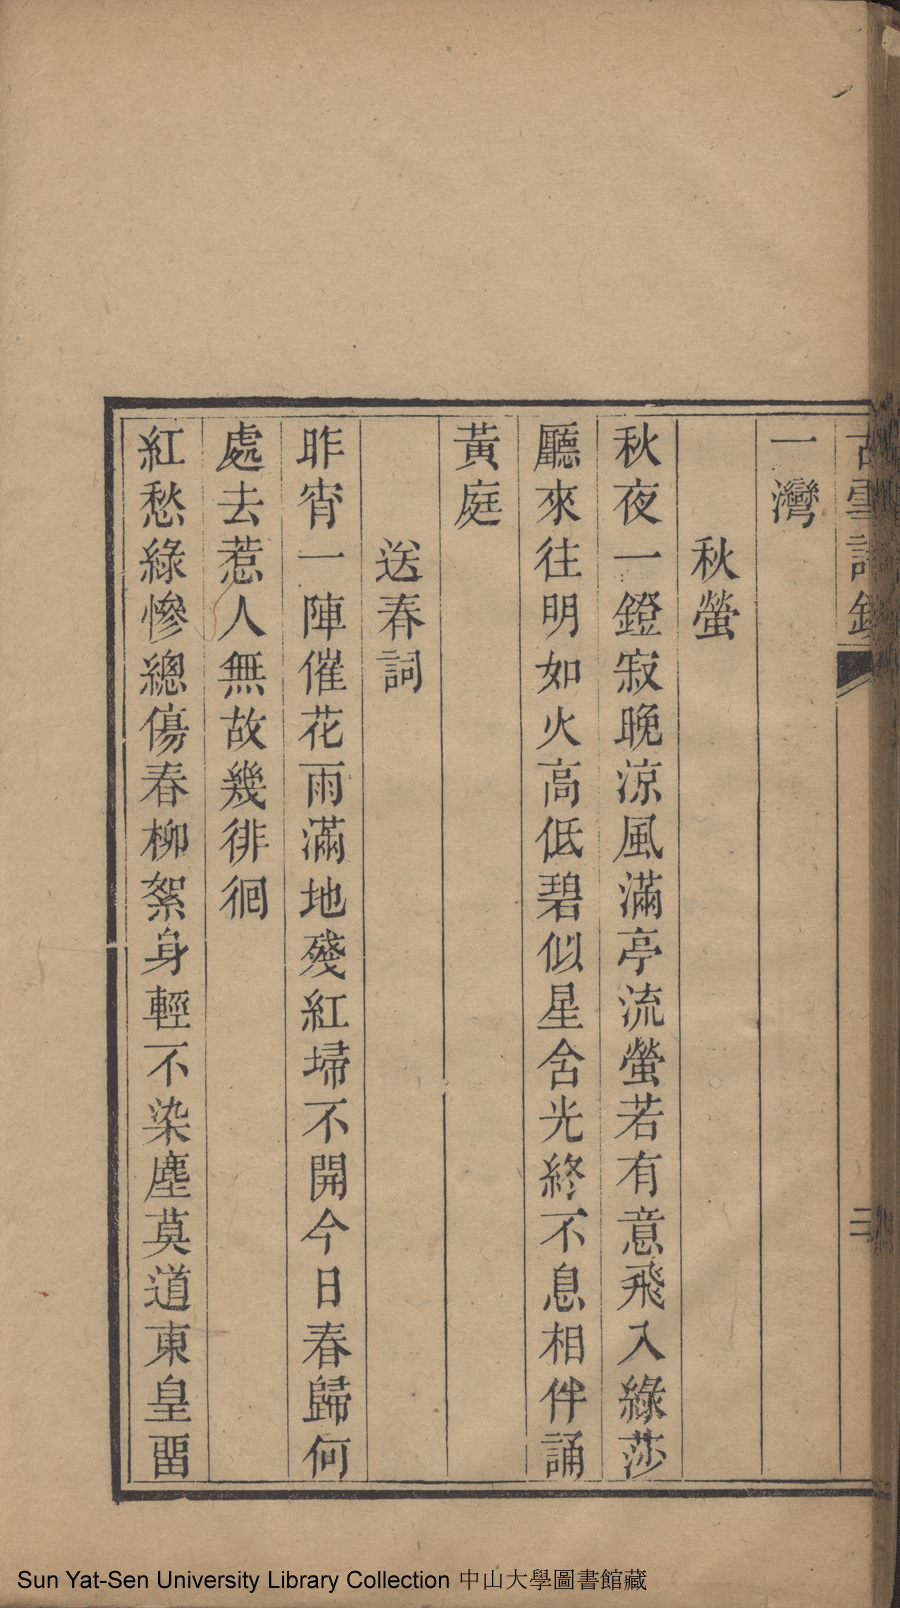 古雲詩鈔
三
一灣
秋螢
秋夜一鐙寂晚涼風滿亭流螢若有意飛入綠莎
廳來往明如火高低碧似星含光終不息相伴誦
黃庭
送春詞
昨宵一陣催花雨滿地殘紅埽不開今日春歸何
處去惹人無故幾徘徊
紅愁綠慘總傷春柳絮身輕不染塵莫道東皇畱
Sun Yat-Sen University Library Collection 中山大學圖書館藏